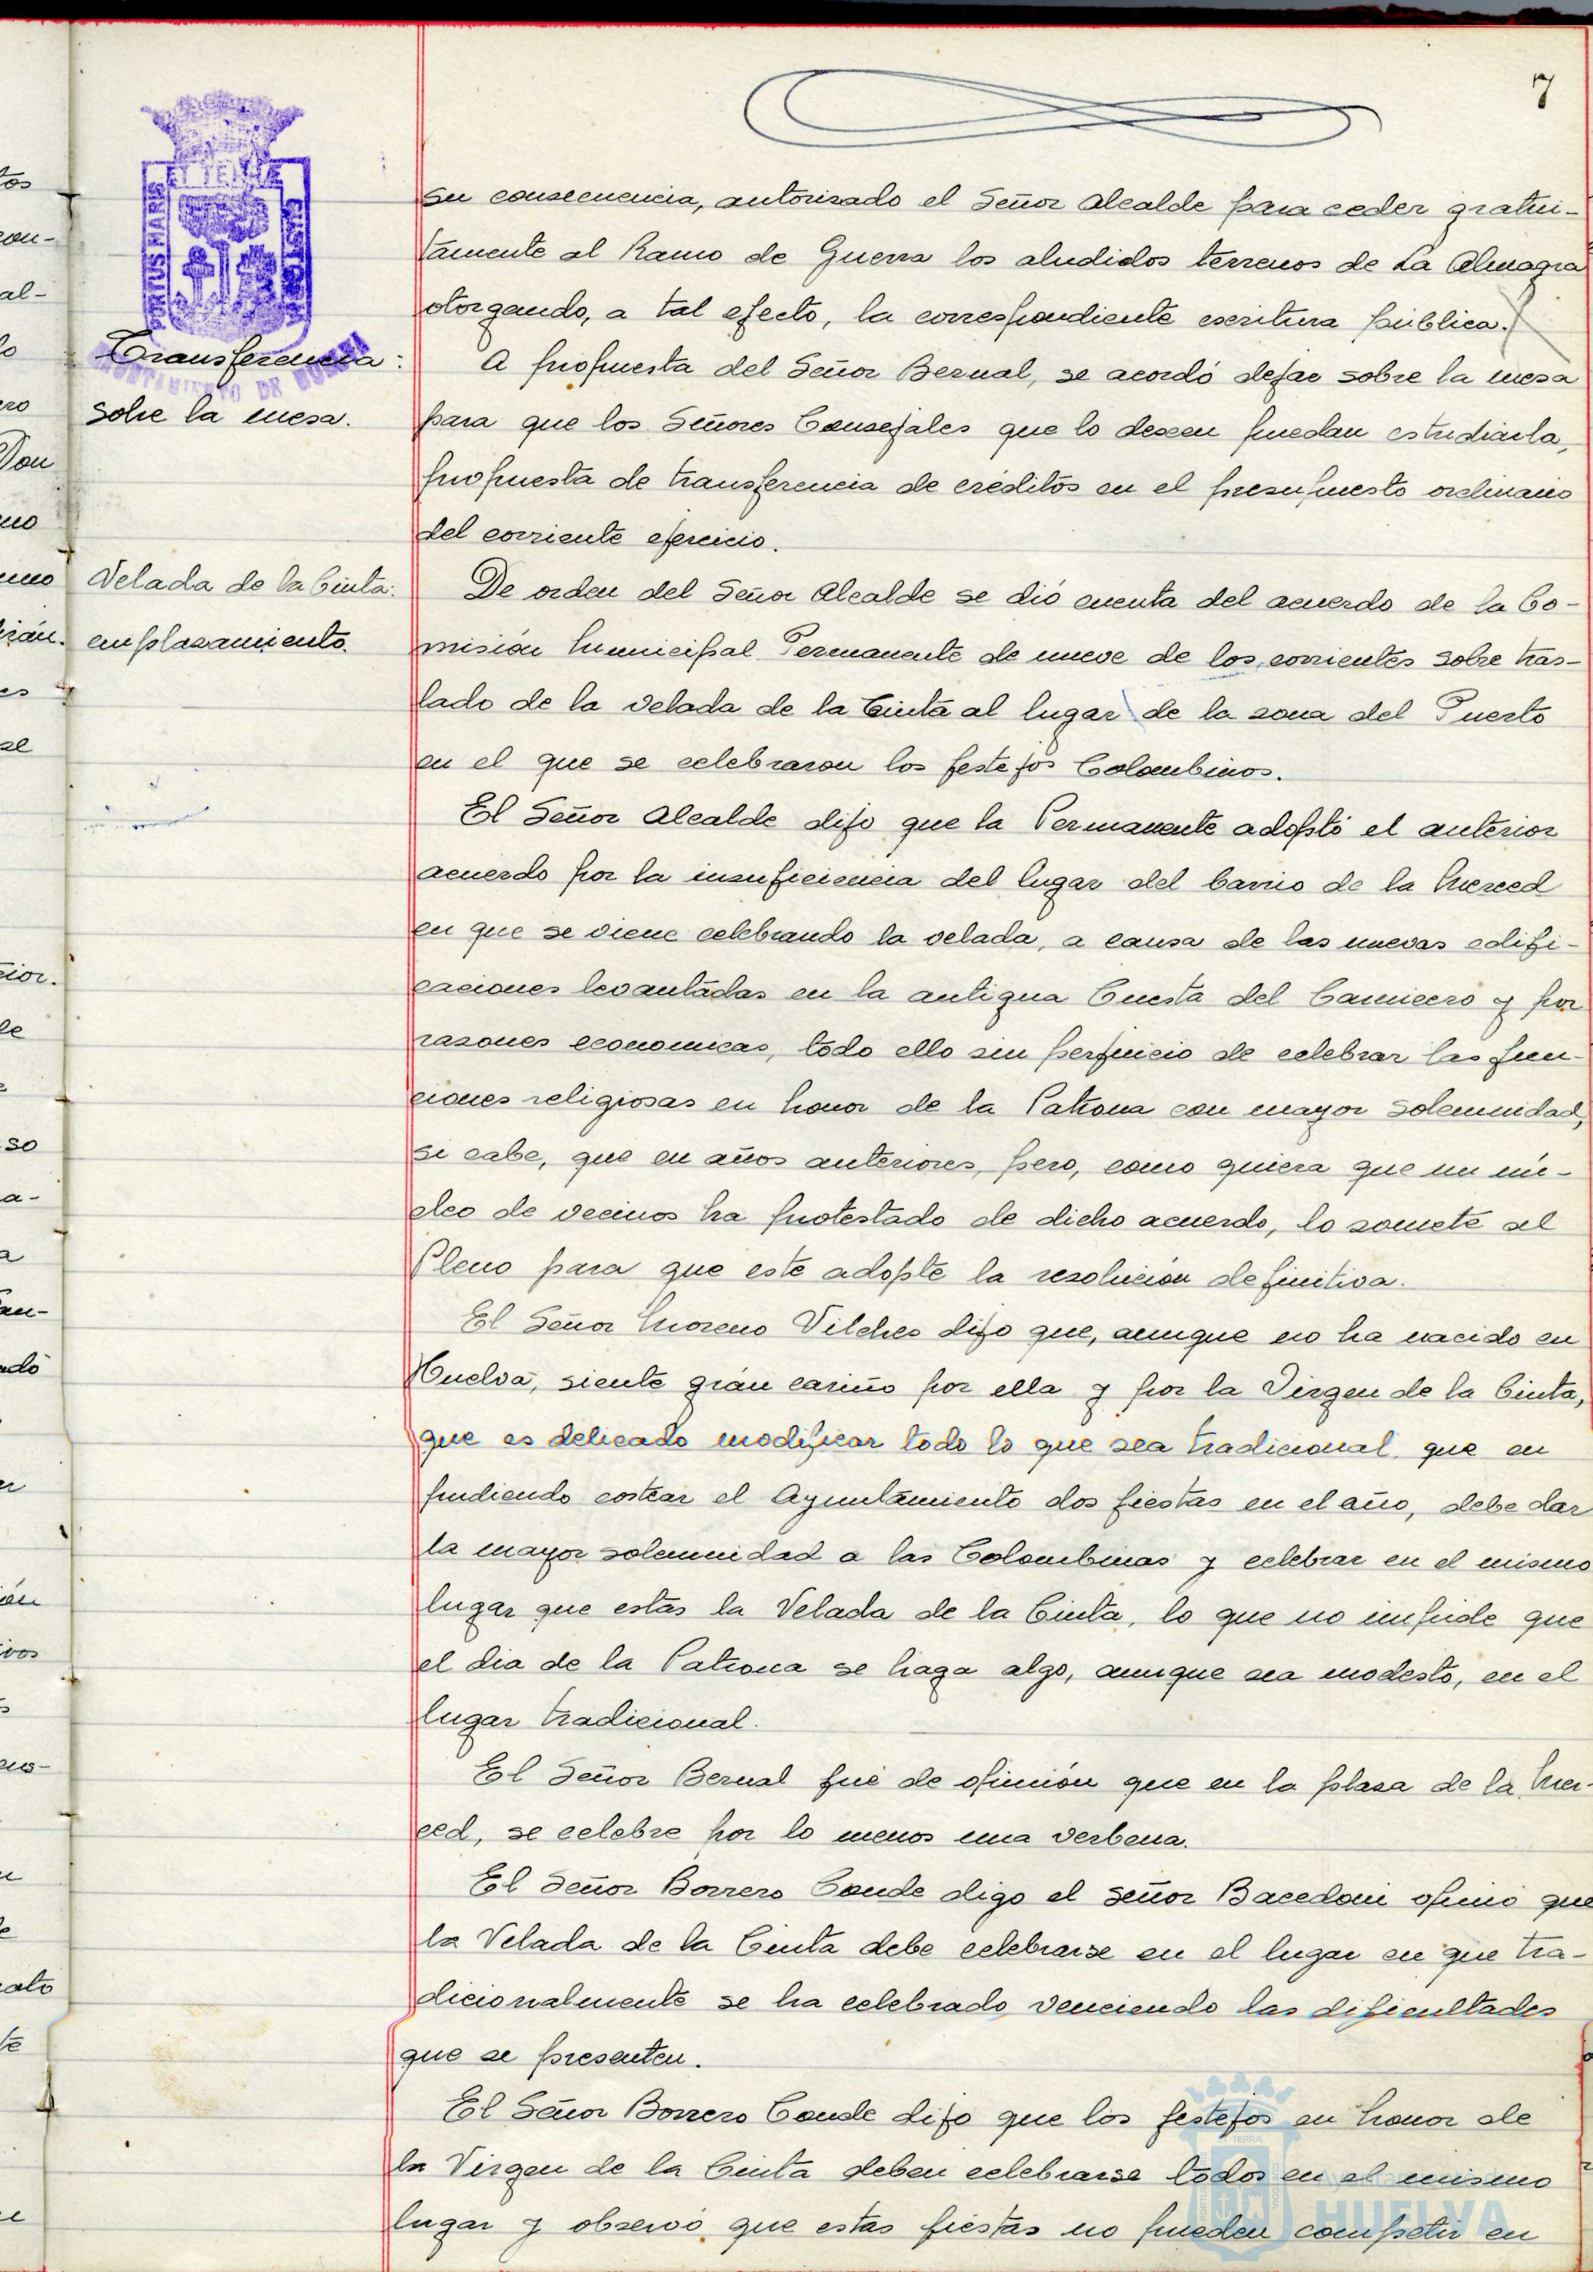 7
su consecuencia, autorizado el Señor Alcalde para ceder gratui-
tamente al Ramo de Guerra los aludidos terrenos de La Almagra
otorgando, a tal efecto, la correspondiente escritura pública.
Transferencia:
sobre la mesa.
A propuesta del Señor Bernal, se acordó dejar sobre la mesa
para que los Señores Consejales que lo deseen puedan estudiarla,
propuesta de transferencia de créditos en el presupuesto ordinario
del corriente ejercicio.
Velada de la Cinta:
emplazamiento.
De orden del Señor Alcalde se dió cuenta del acuerdo de la Co-
misión Municipal Permanente de nueve de los corrientes sobre tras-
lado de la velada de la Cinta al lugar de la zona del Puerto
en el que se celebraron los festejos Colombinos.
El Señor Alcalde dijo que la Permanente adoptó el anterior
acuerdo por la insuficiencia del lugar del barrio de la Merced
en que se viene celebrando la velada, a causa de las nuevas edifi-
caciones levantadas en la antigua Cuesta del Carnicero y por
razones economicas, todo ello sin perjuicio de celebrar las fun-
ciones religiosas en honor de la Patrona con mayor solemnidad,
si cabe, que en años anteriores, pero, como quiera que un nú-
cleo de vecinos ha protestado de dicho acuerdo, lo somete al
Pleno para que este adopte la resolución definitiva.
El Señor Moreno Vilches dijo que, aunque no ha nacido en
Huelva, siente gran cariño por ella y por la Virgen de la Cinta,
que es delicado modificar todo lo que sea tradicional, que en
pudiendo costear el Ayuntamiento dos fiestas en el año, debe dar
la mayor solemnidad a las Colombinas y celebrar en el mismo
lugar que estas la Velada de la Cinta, lo que no impide que
el dia de la Patrona se haga algo, aunque sea modesto, en el
lugar tradicional.
El Señor Bernal fué de opinión que en la plaza de la Mer-
ced, se celebre por lo menos una verbena.
El Señor Borrero Conde digo el señor Bacedoni opinó que
la Velada de la Cinta debe celebrarse en el lugar en que tra-
dicionalmente se ha celebrado venciendo las dificultades
que se presenten.
El Señor Borrero Conde dijo que los festejos en honor de
la Virgen de la Cinta deben celebrarse todos en el mismo
lugar y observó que estas fiestas no pueden competir en
PORTUS MARIS
ET TERRAE
CUSTODIA
AYUNTAMIENTO DE HUELVA
HUELVA